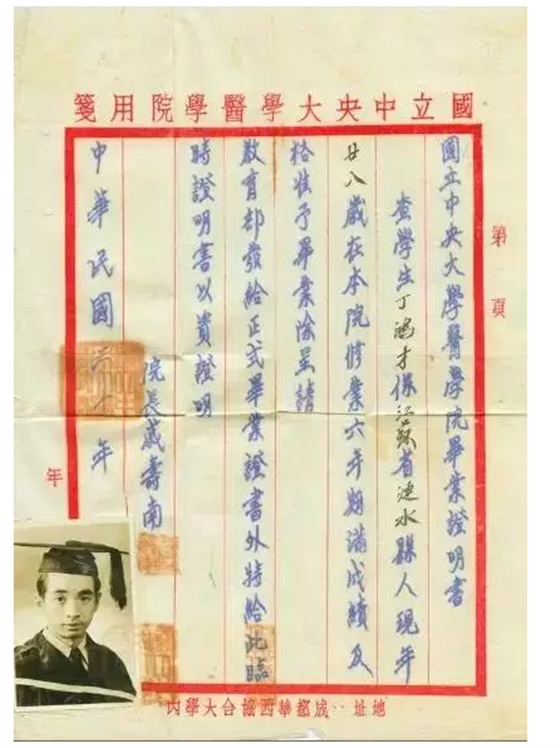 國立中央大學醫學院用箋
第 頁
國立中央大學醫學院畢業證明書
查學生丁鴻才係江蘇省漣水縣人現年
廿八歲在本院修業六年期滿成績及
格准予畢業除呈請
教育部發給正式畢業證書外特給此臨
時證明書以資證明
院長戚壽南
中華民國三十年
年
地址：成都華西協合大學內